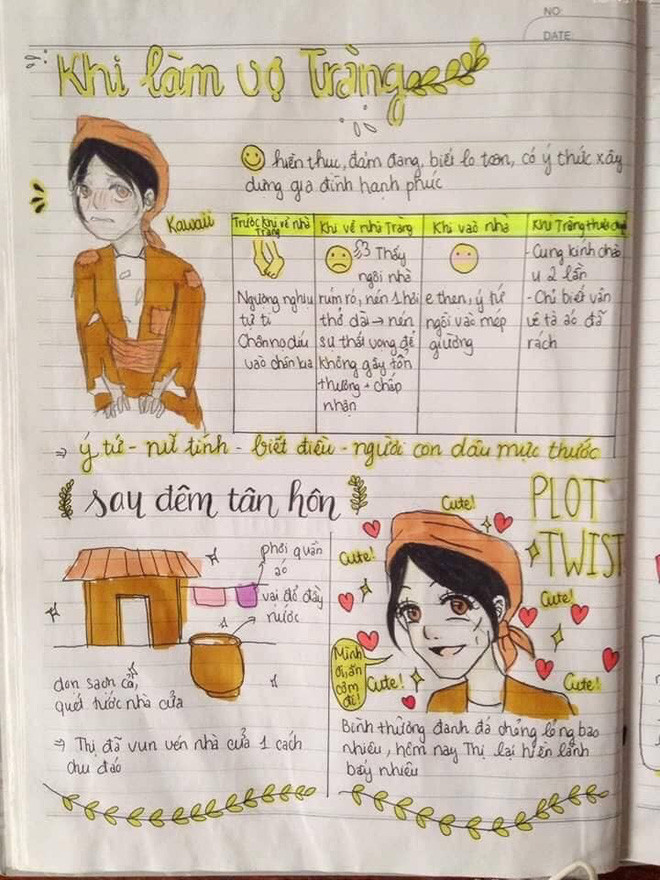 NO:
DATE:
Khi làm vợ Tràng
hiền thục, đảm đang, biết lo toan, có ý thức xây
dựng gia đình hạnh phúc
Kawaii
Trước khi về nhà
Tràng
Ngượng nghịu
tự ti
Chân nọ díu
vào chân kia
Khi về nhà Tràng
Thấy
ngôi nhà
rúm ró, nén 1 hơi
thở dài → nén
sự thất vọng để
không gây tổn
thương + chấp
nhận
Khi vào nhà
e then, ý tứ
ngồi vào mép
giường
Khi Tràng thưa
- Cung kính chào
u 2 lần
- Chỉ biết vân
vê tà áo đã
rách
⇒ ý tứ - nữ tính - biết điều - người con dâu mực thước
say đêm tân hôn
phơi quần
áo
vại đổ đầy
nước
dọn sạch cả,
quét tước nhà cửa
⇒ Thị đã vun vén nhà cửa 1 cách
chu đáo
PLOT
TWIST
Cute!
Cute!
Cute!
Cute!
Cute!
Mình
ơi, ăn
cơm
đi!
Bình thường đanh đá chỏng lỏng bao
nhiêu, hôm nay Thị lại hiền lành
bấy nhiêu